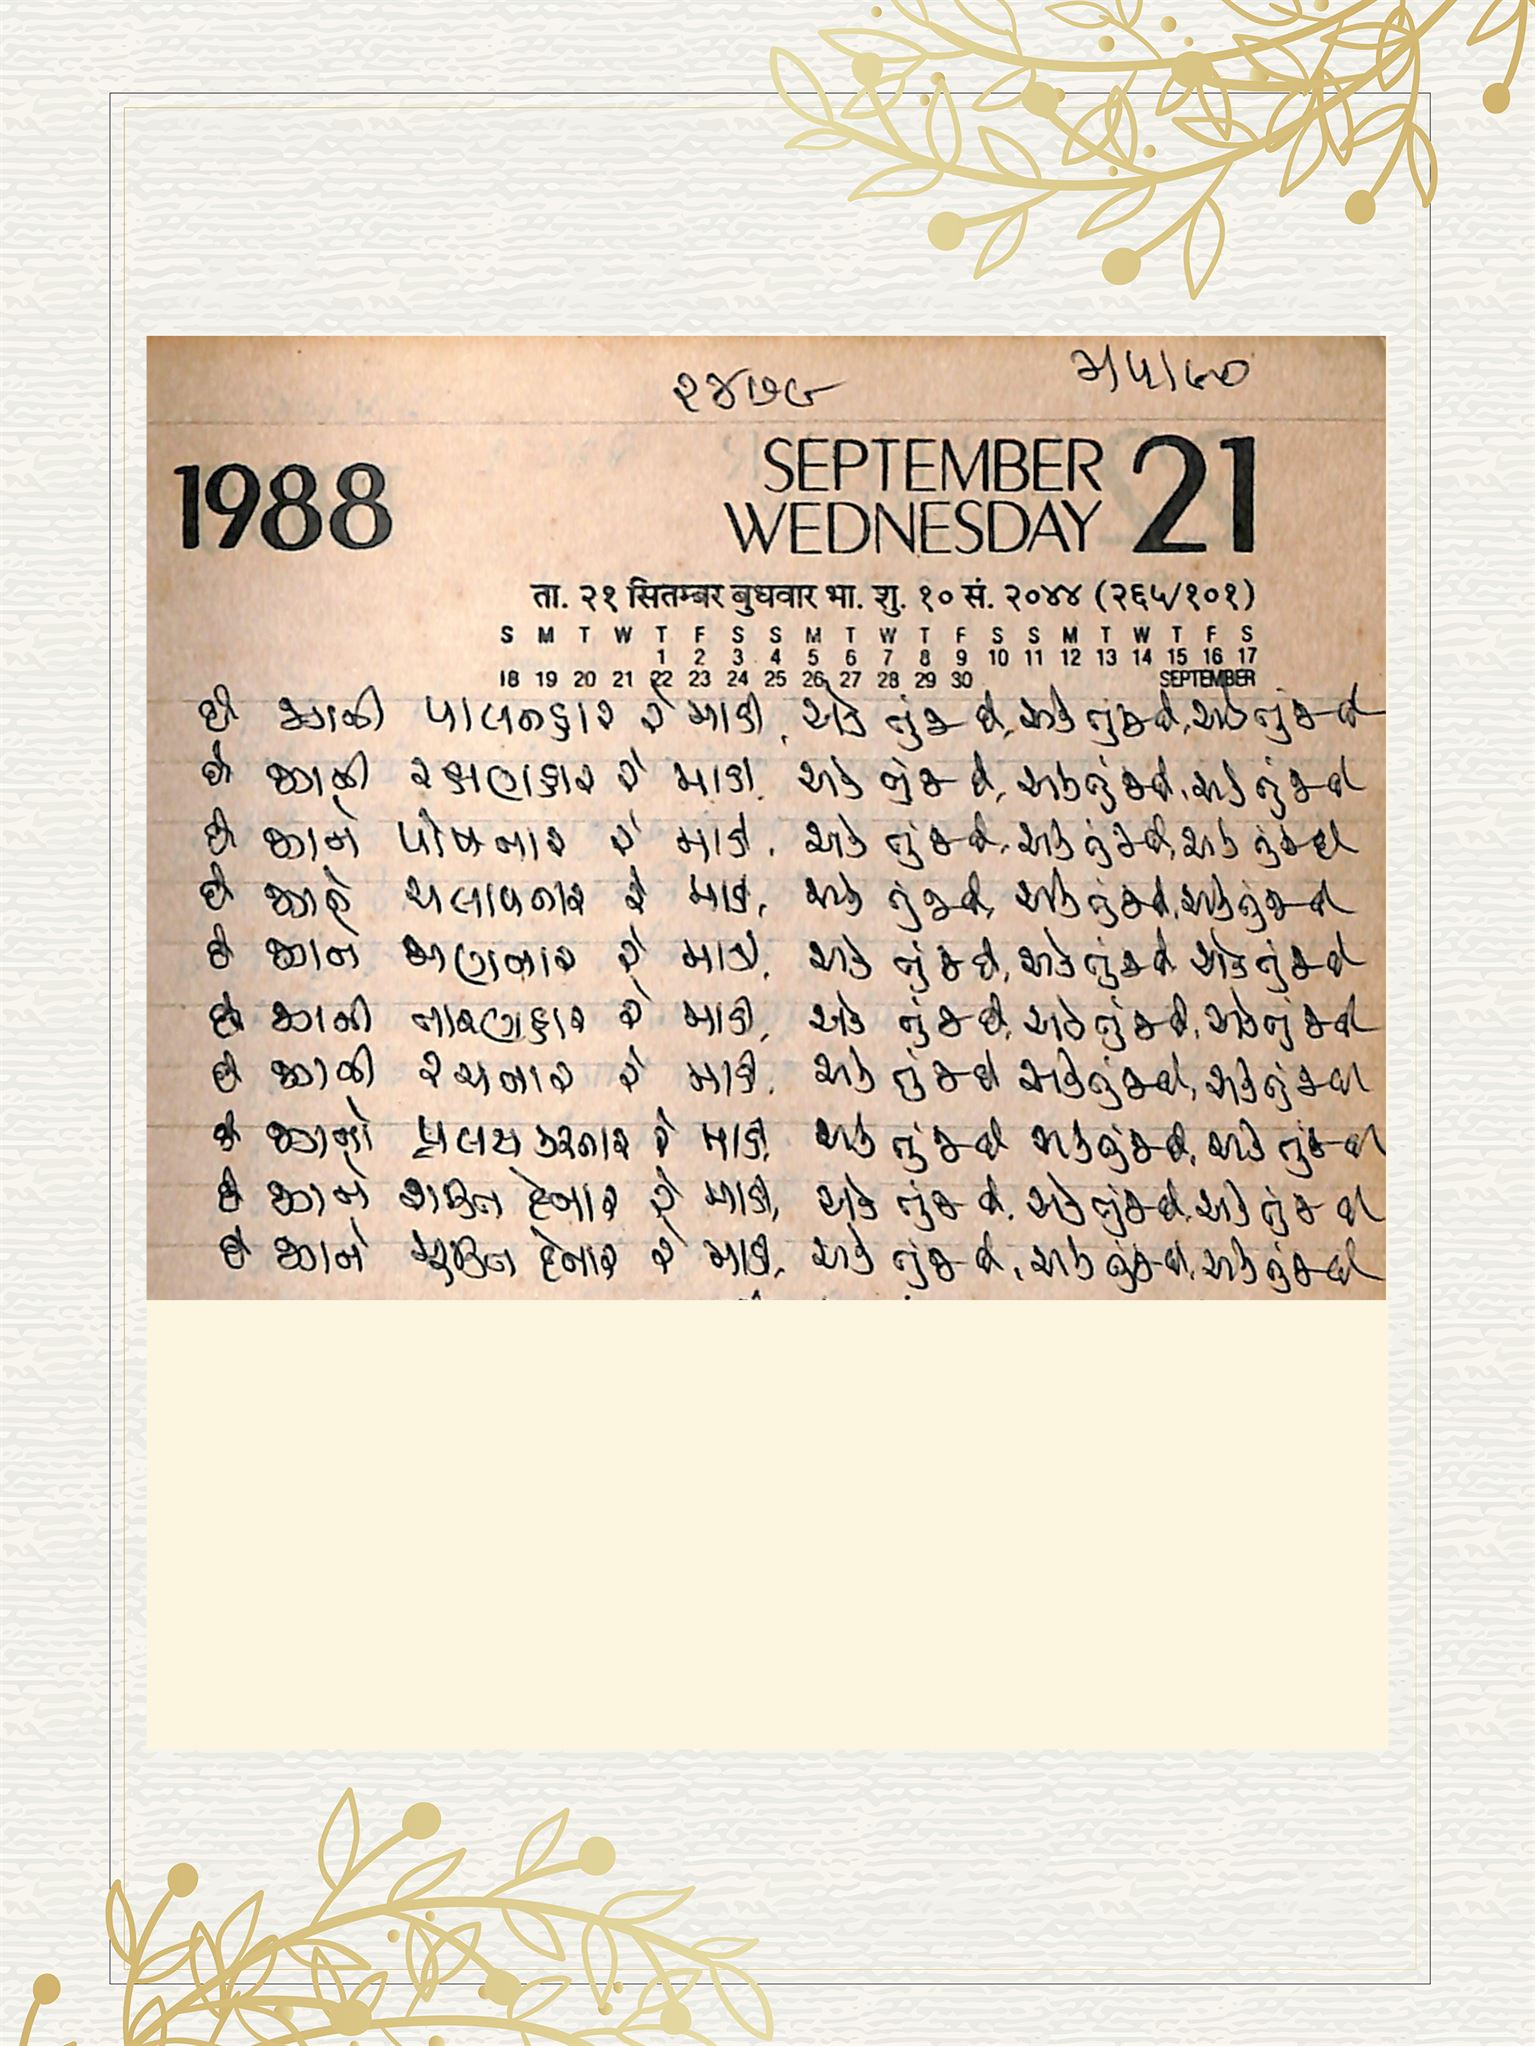 ૨૪૭૯
1988 SEPTEMBER 21
WEDNESDAY
ता. २१ सितम्बर बुधवार भा. शु. १० सं. २०४४ (२६५/१०१)
S M T W T F S S M T W T F S S M T W T F S
1 2 3 4 5 6 7 8 9 10 11 12 13 14 15 16 17
18 19 20 21 22 23 24 25 26 27 28 29 30 SEPTEMBER
છે જગની પાલનહાર રે માડી, એક તું જ છે, એક તું જ છે, એક તું જ છે
છે જગની રક્ષણહાર રે માડી, એક તું જ છે, એક તું જ છે, એક તું જ છે
છે જગને પોષનાર રે માડી, એક તું જ છે, એક તું જ છે, એક તું જ છે
છે જગને ચલાવનાર રે માડી, એક તું જ છે, એક તું જ છે, એક તું જ છે
છે જગને જાણનાર રે માડી, એક તું જ છે, એક તું જ છે, એક તું જ છે
છે જગની તારણહાર રે માડી, એક તું જ છે, એક તું જ છે, એક તું જ છે
છે જગની રચનાર રે માડી, એક તું જ છે, એક તું જ છે, એક તું જ છે
છે જગનો પ્રલય કરનાર રે માડી, એક તું જ છે, એક તું જ છે, એક તું જ છે
છે જગને શક્તિ દેનાર રે માડી, એક તું જ છે, એક તું જ છે, એક તું જ છે
છે જગને મુક્તિ દેનાર રે માડી, એક તું જ છે, એક તું જ છે, એક તું જ છે